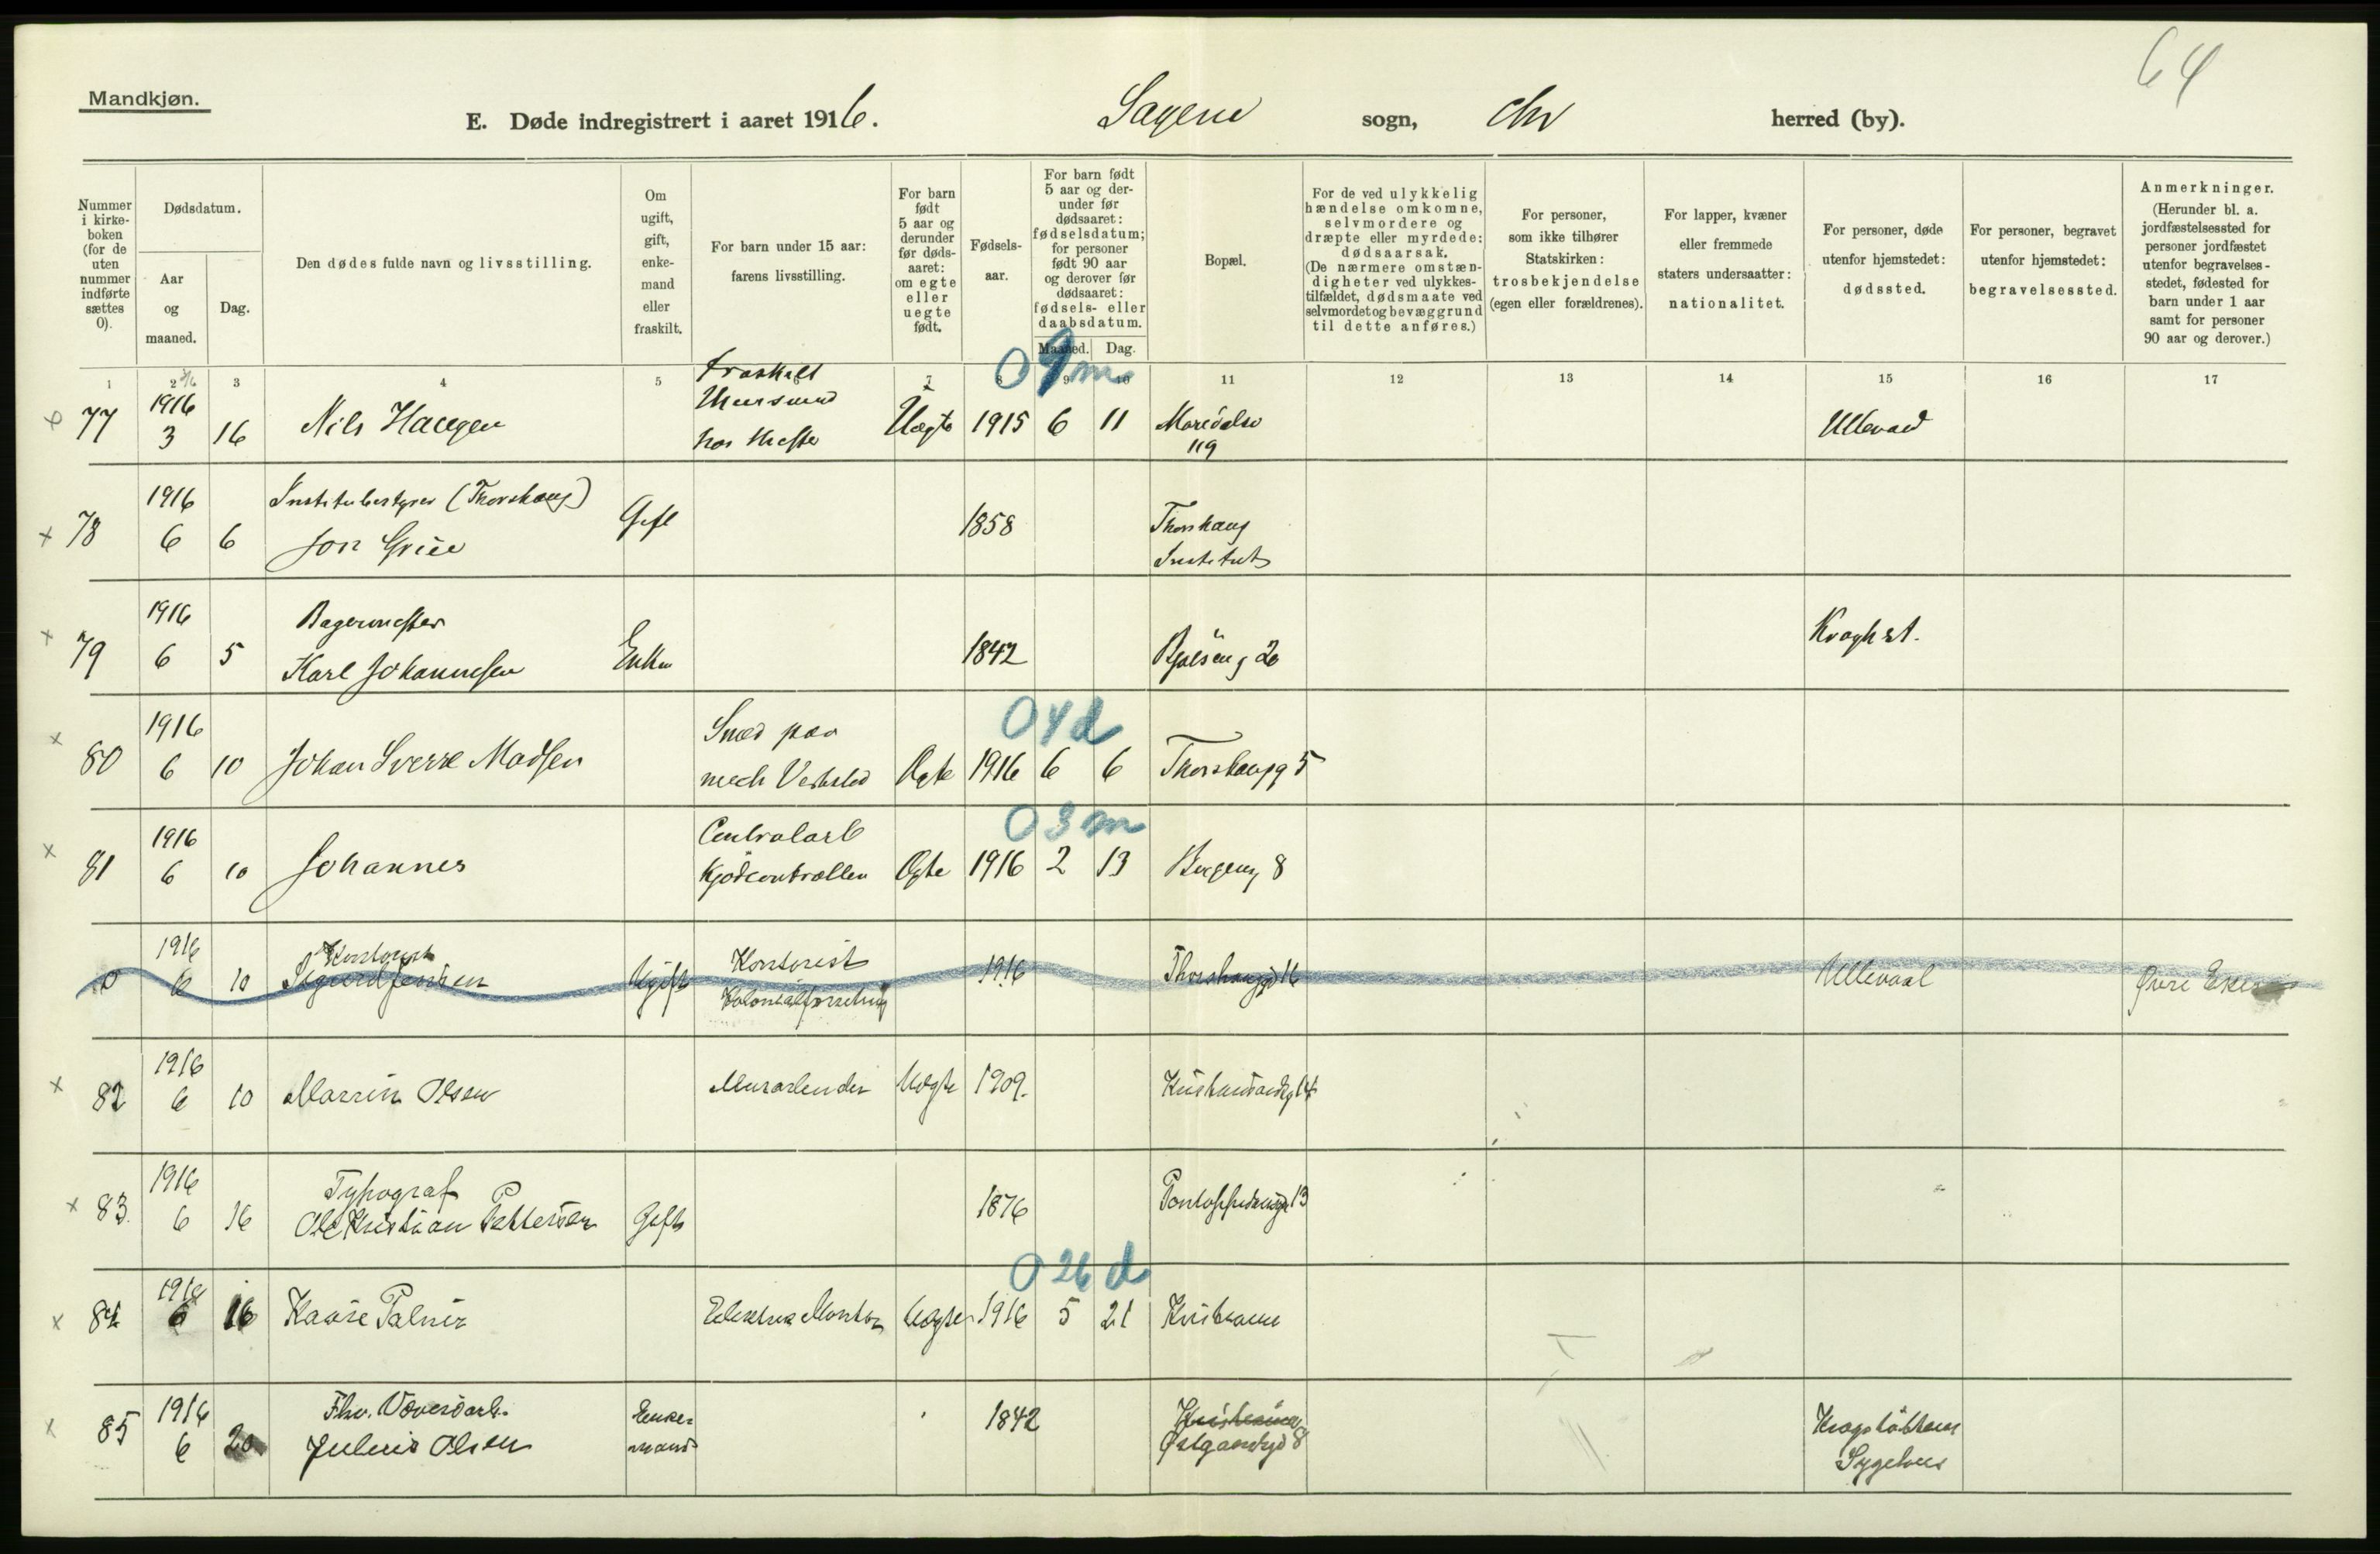 64
Mandkjøn.
E. Døde indregistrert i aaret 1916. Sagene sogn, Chr herred (by).
Nummer i kirkeboken (for de uten nummer indførte sættes 0).
Dødsdatum.
Aar og maaned.
Dag.
Den dødes fulde navn og livsstilling.
Om ugift, gift, enkemand eller fraskilt.
For barn under 15 aar: farens livsstilling.
For barn født 5 aar og derunder før dødsaaret: om egte eller uegte født.
Fødselsaar.
For barn født 5 aar og derunder før dødsaaret: fødselsdatum; for personer født 90 aar og derover før dødsaaret: fødsels- eller daabsdatum.
Maaned. Dag.
Bopæl.
For de ved ulykkelig hændelse omkomne, selvmordere og dræpte eller myrdede: dødsaarsak. (De nærmere omstændigheter ved ulykkestilfældet, dødsmaate ved selvmordet og bevæggrund til dette anføres.)
For personer, som ikke tilhører Statskirken: trosbekjendelse (egen eller forældrenes).
For lapper, kvæner eller fremmede staters undersaatter: nationalitet.
For personer, døde utenfor hjemstedet: dødssted.
For personer, begravet utenfor hjemstedet: begravelsessted.
Anmerkninger. (Herunder bl. a. jordfæstelsessted for personer jordfæstet utenfor begravelsesstedet, fødested for barn under 1 aar samt for personer 90 aar og derover.)
1 2 3 4 5 6 7 8 9 10 11 12 13 14 15 16 17
Fraskilt
09m
77 1916 3 16 Nils Haugen Uegte 1915 6 11 119 Ullevaal
78 1916 6 6 (Thorshaug) Jon Grue Gift 1858 Thorshaug Institut
79 1916 6 5 Bagermester Karl Johannesen Enkem 1842 Kragh st.
04d
80 1916 6 10 Johan Sverre Madsen Smed paa mech Verksted Egte 1916 6 6 Thorshaugg 5
03m
81 1916 6 10 Johannes Kjødcontrollen Egte 1916 2 13 Bergeng 8
0 1916 6 10 Kontorist Sigurd Jensen Ugift Kontorist Kolonialforretning 1916 Thorshauggd 16 Ullevaal Øvre Eker
82 1916 6 10 Olsen Uegte 1909. Kristiansandsg 14
83 1916 6 16 Typograf Ole Kristian Pettersen Gift 1876 13
026d
84 1916 6 16 Kaare Palmer Elektrik Montør Uegte 1916 5 21 Kristiania
85 1916 6 20 Fhv. Julius Olsen Enkemand 1842 Kristiania Østgaardsgd 8 Sygehus